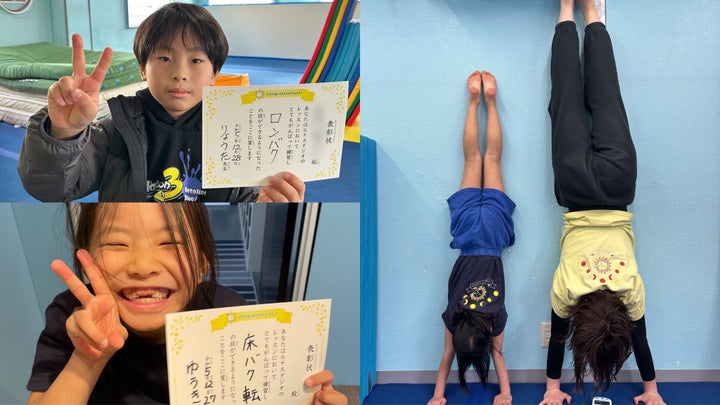 Congratulations!
表彰状
殿
あなたはルナスタジオの
レッスンにおいて
とてもがんばって練習し
ロンバク
の技ができるようになった
ことをここに表します
令和5年12月28日
りょうた先生
Congratulations!
表彰状
殿
あなたはルナスタジオの
レッスンにおいて
とてもがんばって練習し
床バク転
の技ができるようになった
ことをここに表します
令和5年12月27
ゆうき